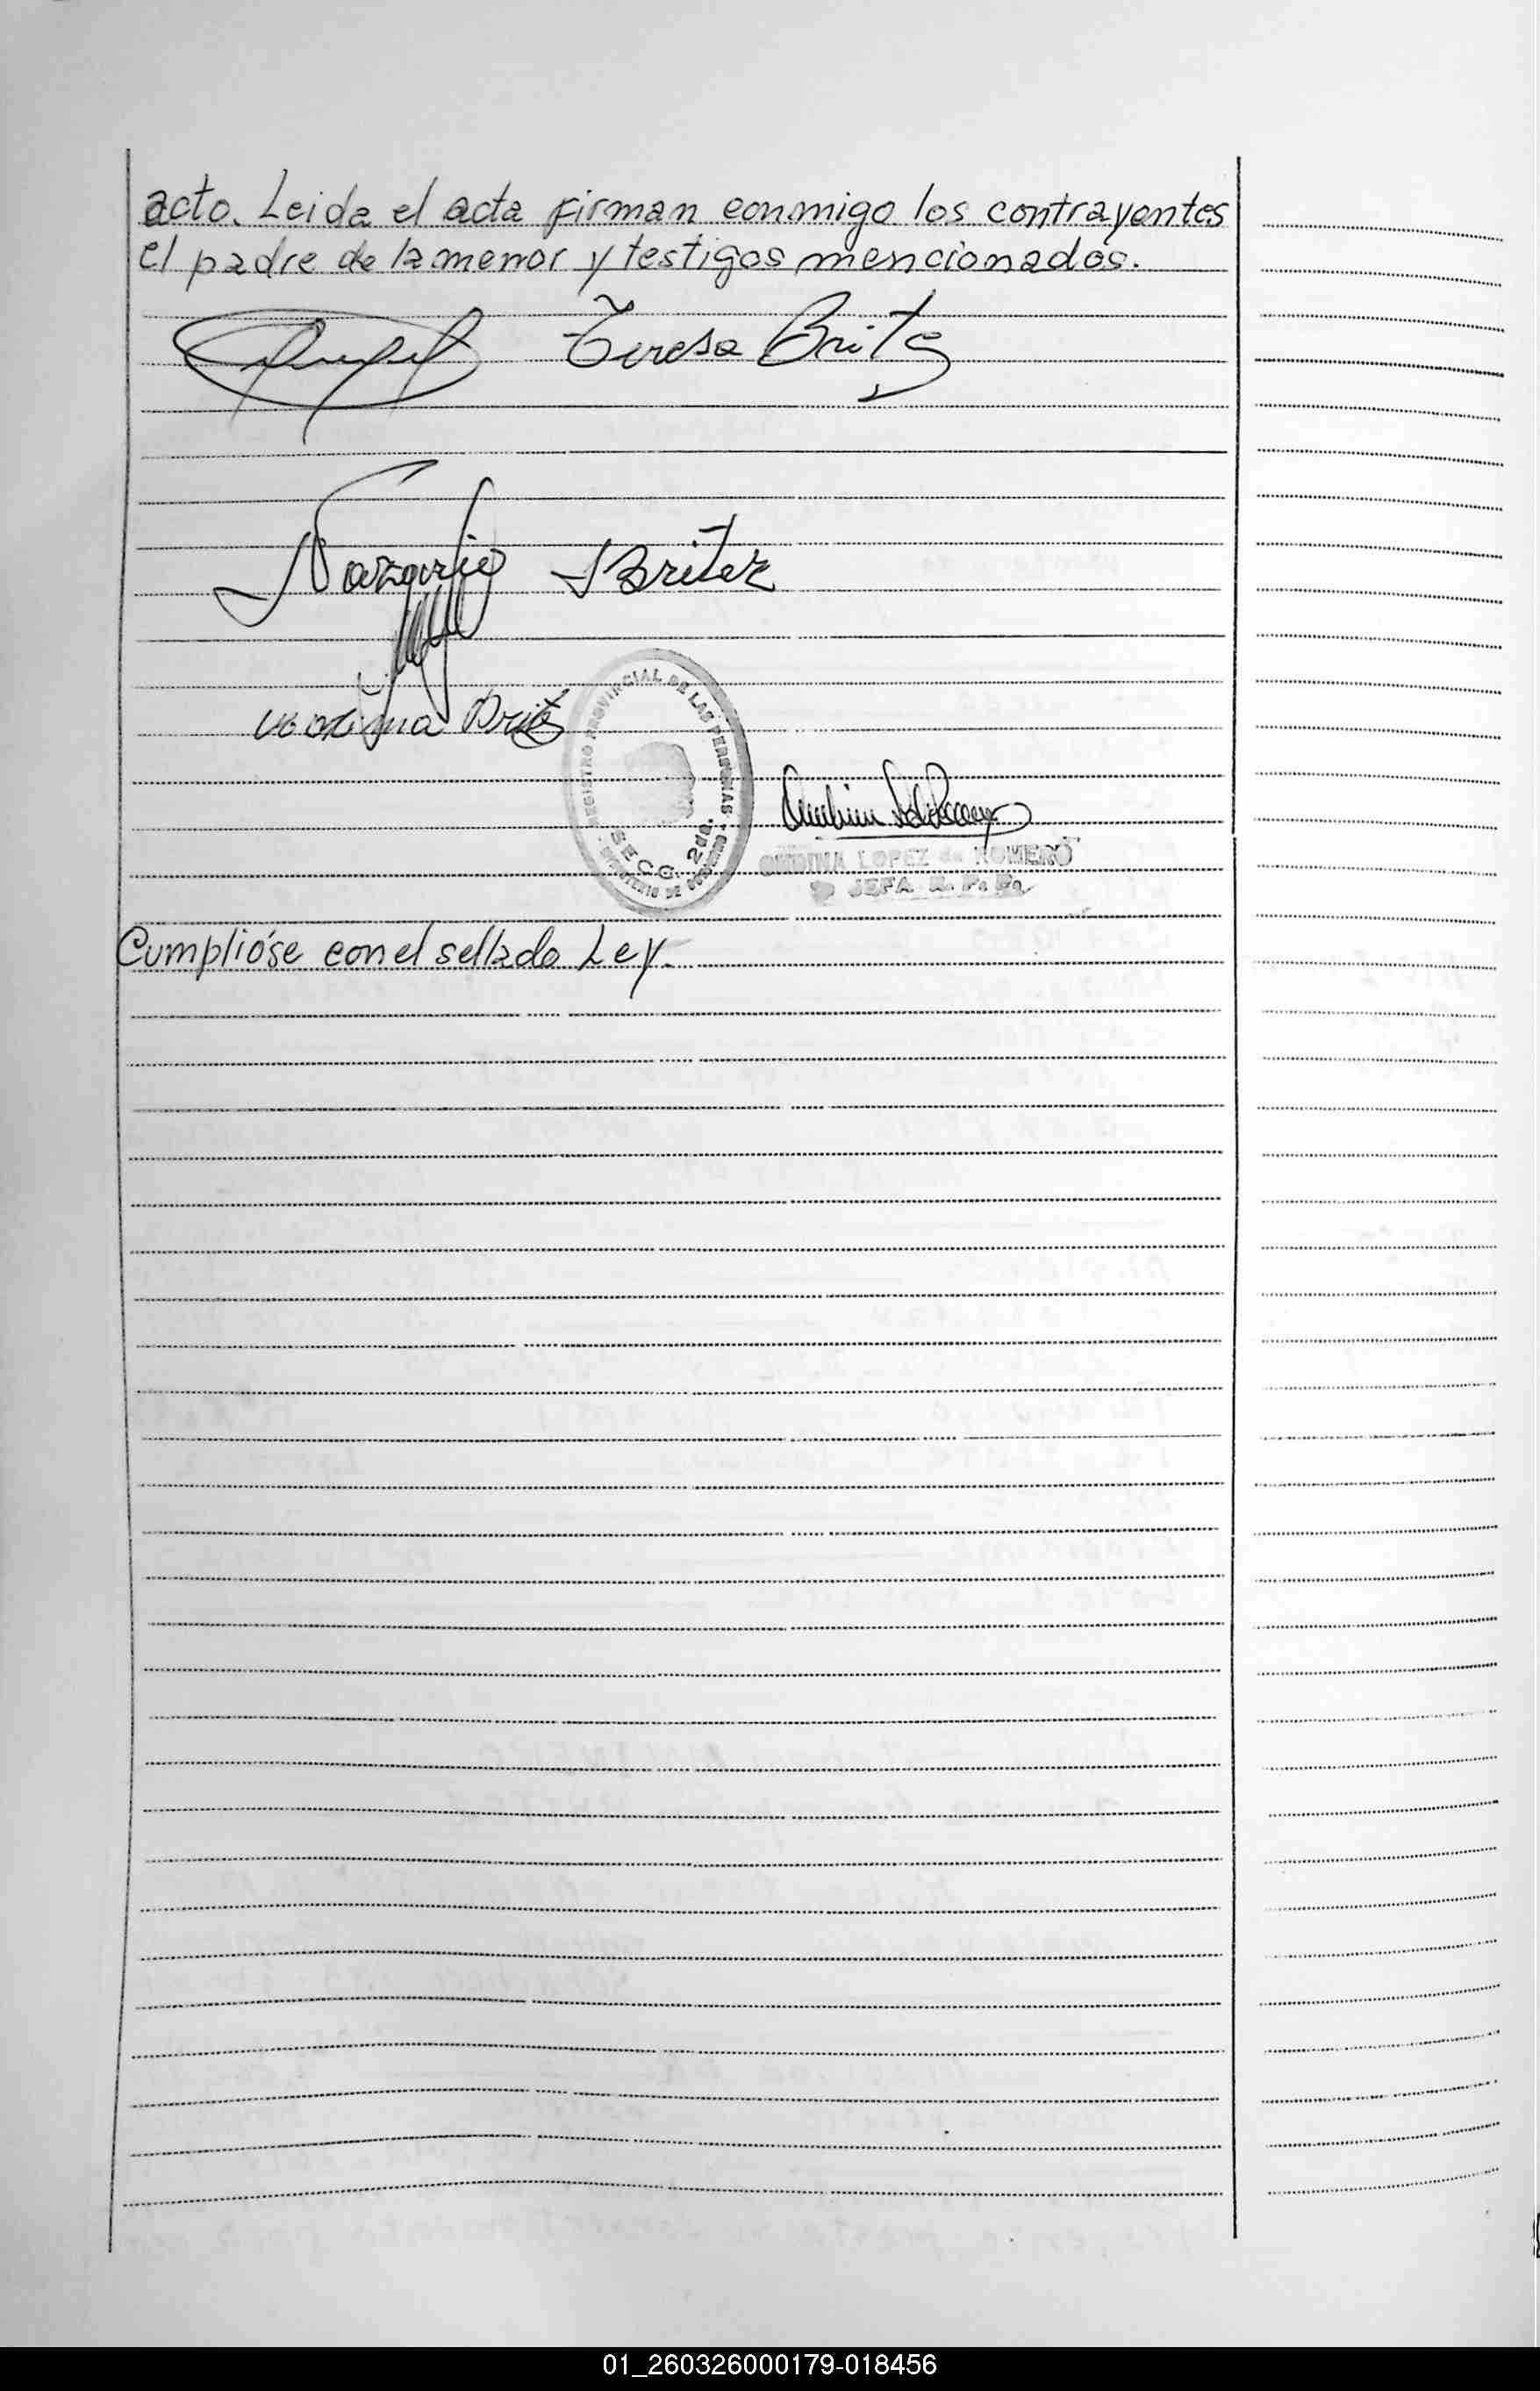 acto. Leida el acta firman conmigo los contrayentes
el padre de la menor y testigos mencionados.
Teresa Britez
Britez
Britez
REGISTRO PROVINCIAL DE LAS PERSONAS
MINISTERIO DE GOBIERNO
SECC. 2da.
ONDINA LOPEZ de ROMERO
JEFA R. P. P.
Cumplióse con el sellado Ley.
01_260326000179-018456